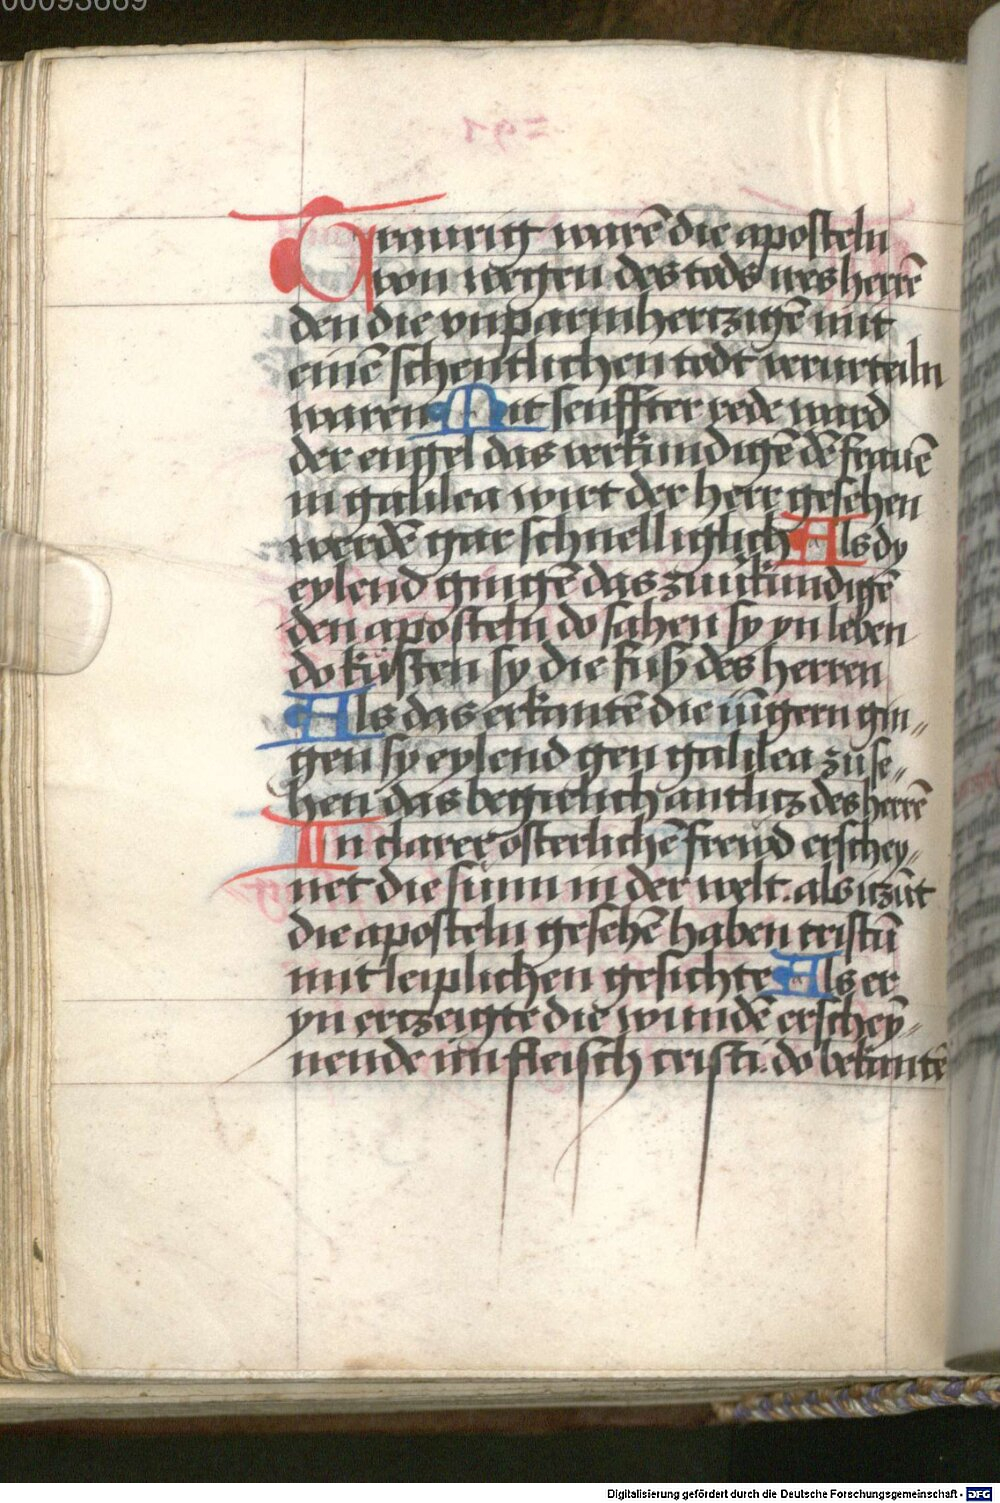 00093669
Traurig warē die aposteln
von wegen des tods irs herrē
den die vnparmhertzigē mit
einē schentlichen todt verurteiln
waren Mit senffter rede ward
der engel das verkündigē dē frauē
in galilea wirt der herr gesehen
werdē gar schnelliglich Als dy
eylend gingē das zuuͦkundigē
den aposteln do sahen sy yn leben
do küsten sy die fuͤß des herren
Als das erkantē die iūgern gin„
gen sy eylend gen galilea zu se„
hen das begirlich antlitz des herrē
In clarer osterlichē freüd erschey„
net die sunn in der welt. als itzūt
die aposteln gesehē haben cristū
mit leiplichen gesichte Als er
yn ertzeigte die wundē erschey„
nende im fleisch cristi. do bekantē
Digitalisierung gefördert durch die Deutsche Forschungsgemeinschaft - DFG